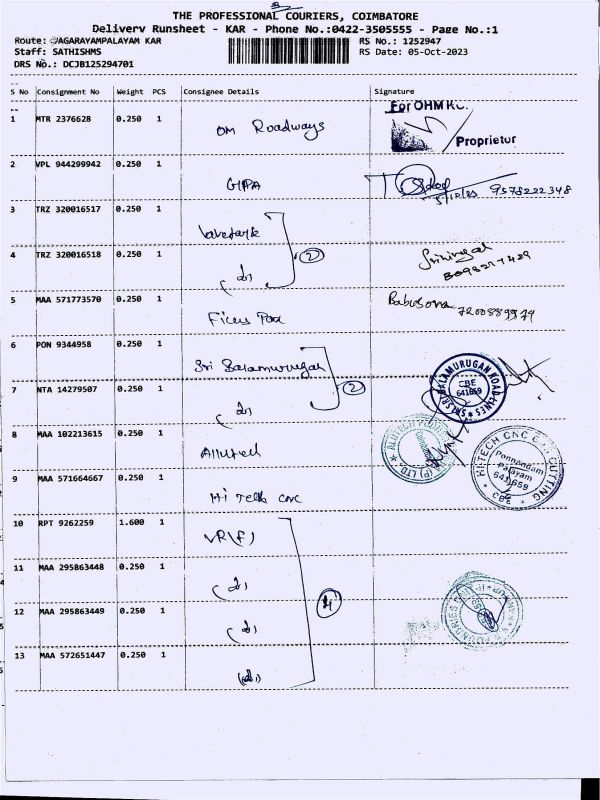 THE PROFESSIONAL COURIERS, COIMBATORE
Delivery Runsheet - KAR - Phone No.:0422-3505555 - Page No.:1
Route: VAGARAYAMPALAYAM KAR RS No.: 1252947
Staff: SATHISHMS RS Date: 05-Oct-2023
DRS No.: DCJB125294701
S No Consignment No Weight PCS Consignee Details Signature
1 MTR 2376628 0.250 1 OM Roadways For OHM
Proprietor
2 VPL 944299942 0.250 1 GIPA 5/10/23 9578222348
3 TRZ 320016517 0.250 1
4 TRZ 320016518 0.250 1 (d) 2
5 MAA 571773570 0.250 1 Ficus Pax Babusona 7200889974
6 PON 9344958 0.250 1 Sri Balamurugan
SRI BALAMURUGAN ROAD LINES CBE 641659
7 NTA 14279507 0.250 1 (d) 2
8 MAA 102213615 0.250 1
9 MAA 571664667 0.250 1 Hi Tech CNC
HITECH CNC GAS CUTTING Ponnandam Palayam 641659 CBE
10 RPT 9262259 1.600 1 VR(F)
11 MAA 295863448 0.250 1 (d) 4
12 MAA 295863449 0.250 1 (d)
13 MAA 572651447 0.250 1 (d)